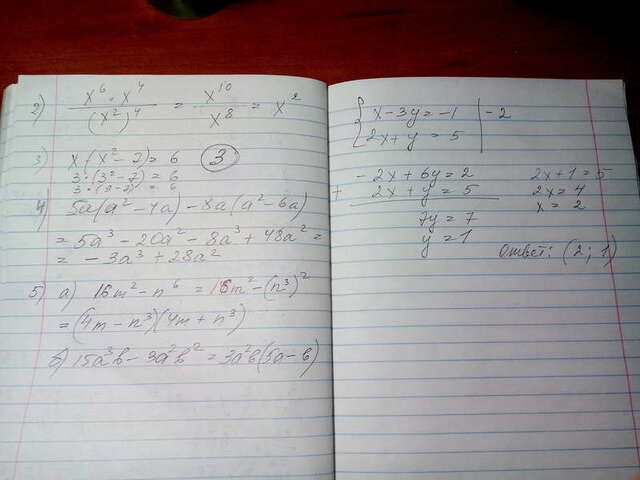 2) x⁶ · x⁴ / (x²)⁴ = x¹⁰ / x⁸ = x²
3) x · (x² - 7) = 6 (3)
3 · (3² - 7) = 6
3 · (9 - 7) = 6
4) 5a(a² - 4a) - 8a(a² - 6a)
= 5a³ - 20a² - 8a³ + 48a² =
= - 3a³ + 28a²
5) а) 16m² - n⁶ = 16m² - (n³)²
= (4m - n³)(4m + n³)
б) 15a³b - 3a²b² = 3a²b(5a - b)
{ x - 3y = -1 | -2
2x + y = 5
- 2x + 6y = 2
+ 2x + y = 5
7y = 7
y = 1
2x + 1 = 5
2x = 4
x = 2
Ответ: (2; 1)